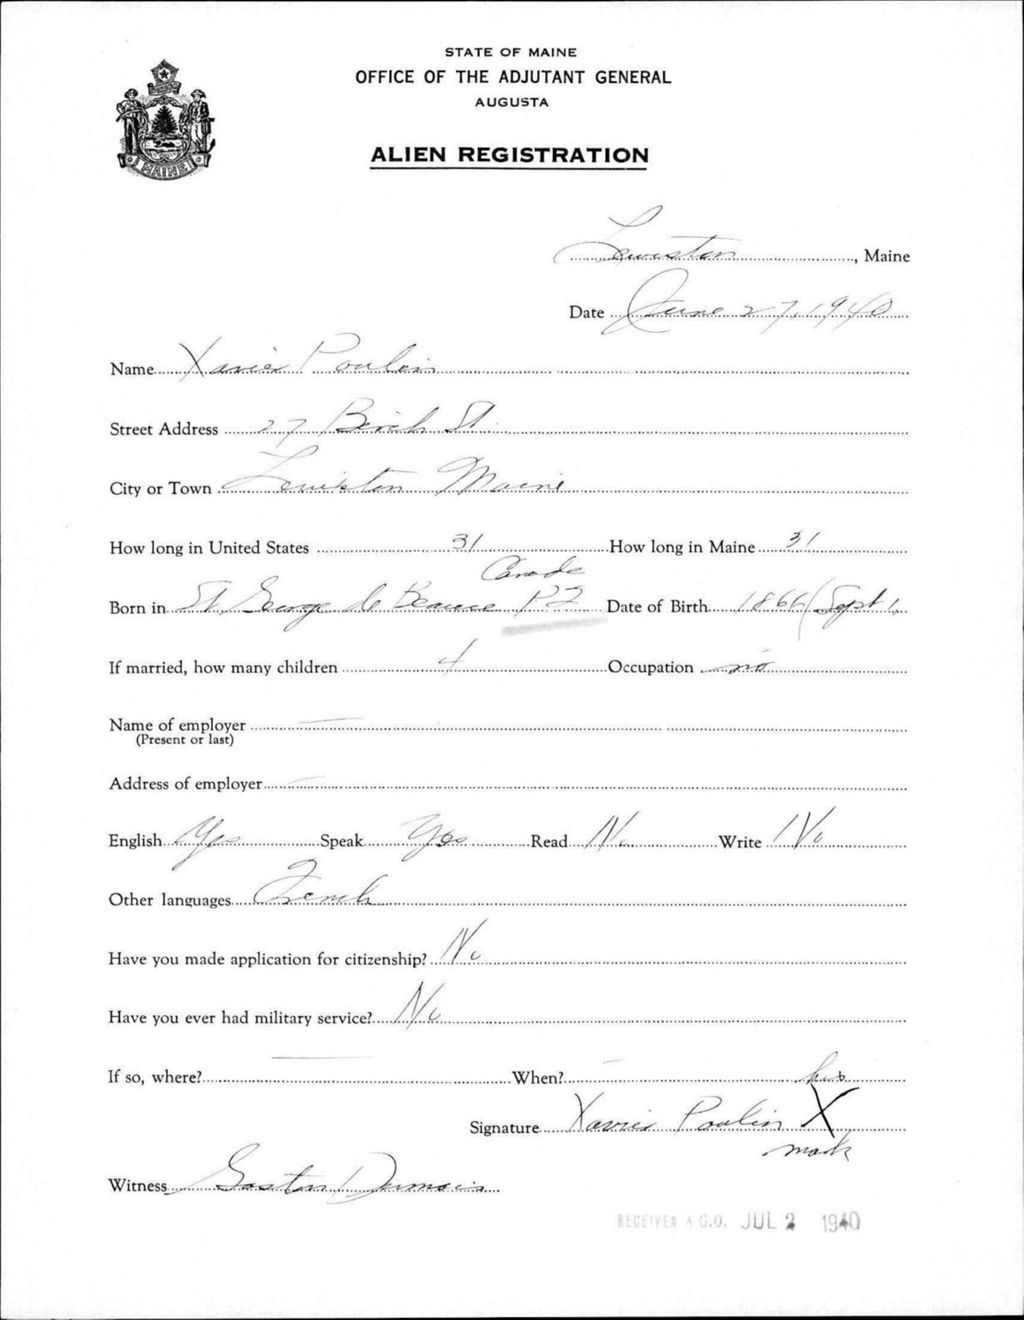 STATE OF MAINE
OFFICE OF THE ADJUTANT GENERAL
AUGUSTA
ALIEN REGISTRATION
MAINE
Lewiston, Maine
Date June 27, 1940
Name Xavier Poulin
Street Address 27 Birch St
City or Town Lewiston Maine
How long in United States 31 How long in Maine 31
Canada
Born in St. George de Beauce P2 Date of Birth 1866 (Sept 1,
If married, how many children 4 Occupation no
Name of employer
(Present or last)
Address of employer
English Yes Speak Yes Read No Write No
Other languages French
Have you made application for citizenship? No
Have you ever had military service? No
If so, where? When? his
Signature Xavier Poulin X
mark
Witness Gaston Dumais
RECEIVED A.G.O. JUL 2 1940